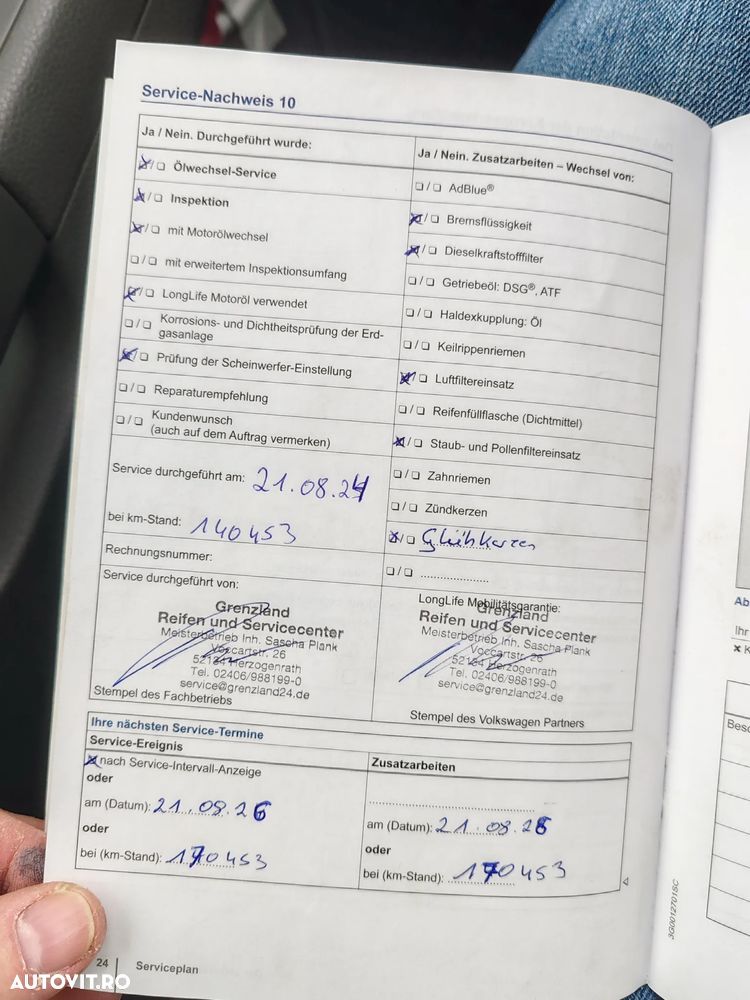 Service-Nachweis 10
Ja / Nein. Durchgeführt wurde:
❏/❏ Ölwechsel-Service
❏/❏ Inspektion
❏/❏ mit Motorölwechsel
❏/❏ mit erweitertem Inspektionsumfang
❏/❏ LongLife Motoröl verwendet
❏/❏ Korrosions- und Dichtheitsprüfung der Erd-
gasanlage
❏/❏ Prüfung der Scheinwerfer-Einstellung
❏/❏ Reparaturempfehlung
❏/❏ Kundenwunsch
(auch auf dem Auftrag vermerken)
Service durchgeführt am: 21.08.24
bei km-Stand: 140453
Rechnungsnummer:
Service durchgeführt von:
Grenzland
Reifen und Servicecenter
Meisterbetrieb Inh. Sascha Plank
Voccartstr. 26
52134 Herzogenrath
Tel. 02406/988199-0
service@grenzland24.de
Stempel des Fachbetriebs
Ja / Nein. Zusatzarbeiten – Wechsel von:
❏/❏ AdBlue®
❏/❏ Bremsflüssigkeit
❏/❏ Dieselkraftstofffilter
❏/❏ Getriebeöl: DSG®, ATF
❏/❏ Haldexkupplung: Öl
❏/❏ Keilrippenriemen
❏/❏ Luftfiltereinsatz
❏/❏ Reifenfüllflasche (Dichtmittel)
❏/❏ Staub- und Pollenfiltereinsatz
❏/❏ Zahnriemen
❏/❏ Zündkerzen
❏/❏ Glühkerzen
❏/❏ .....................
LongLife Mobilitätsgarantie:
Grenzland
Reifen und Servicecenter
Meisterbetrieb Inh. Sascha Plank
Voccartstr. 26
52134 Herzogenrath
Tel. 02406/988199-0
service@grenzland24.de
Stempel des Volkswagen Partners
Ihre nächsten Service-Termine
Service-Ereignis
nach Service-Intervall-Anzeige
oder
am (Datum): 21.08.26
oder
bei (km-Stand): 170453
Zusatzarbeiten
am (Datum): 21.08.26
oder
bei (km-Stand): 170453
24 | Serviceplan
3G0012701SC
Ab
Ihr
× K
Besc
AUTOVIT.RO